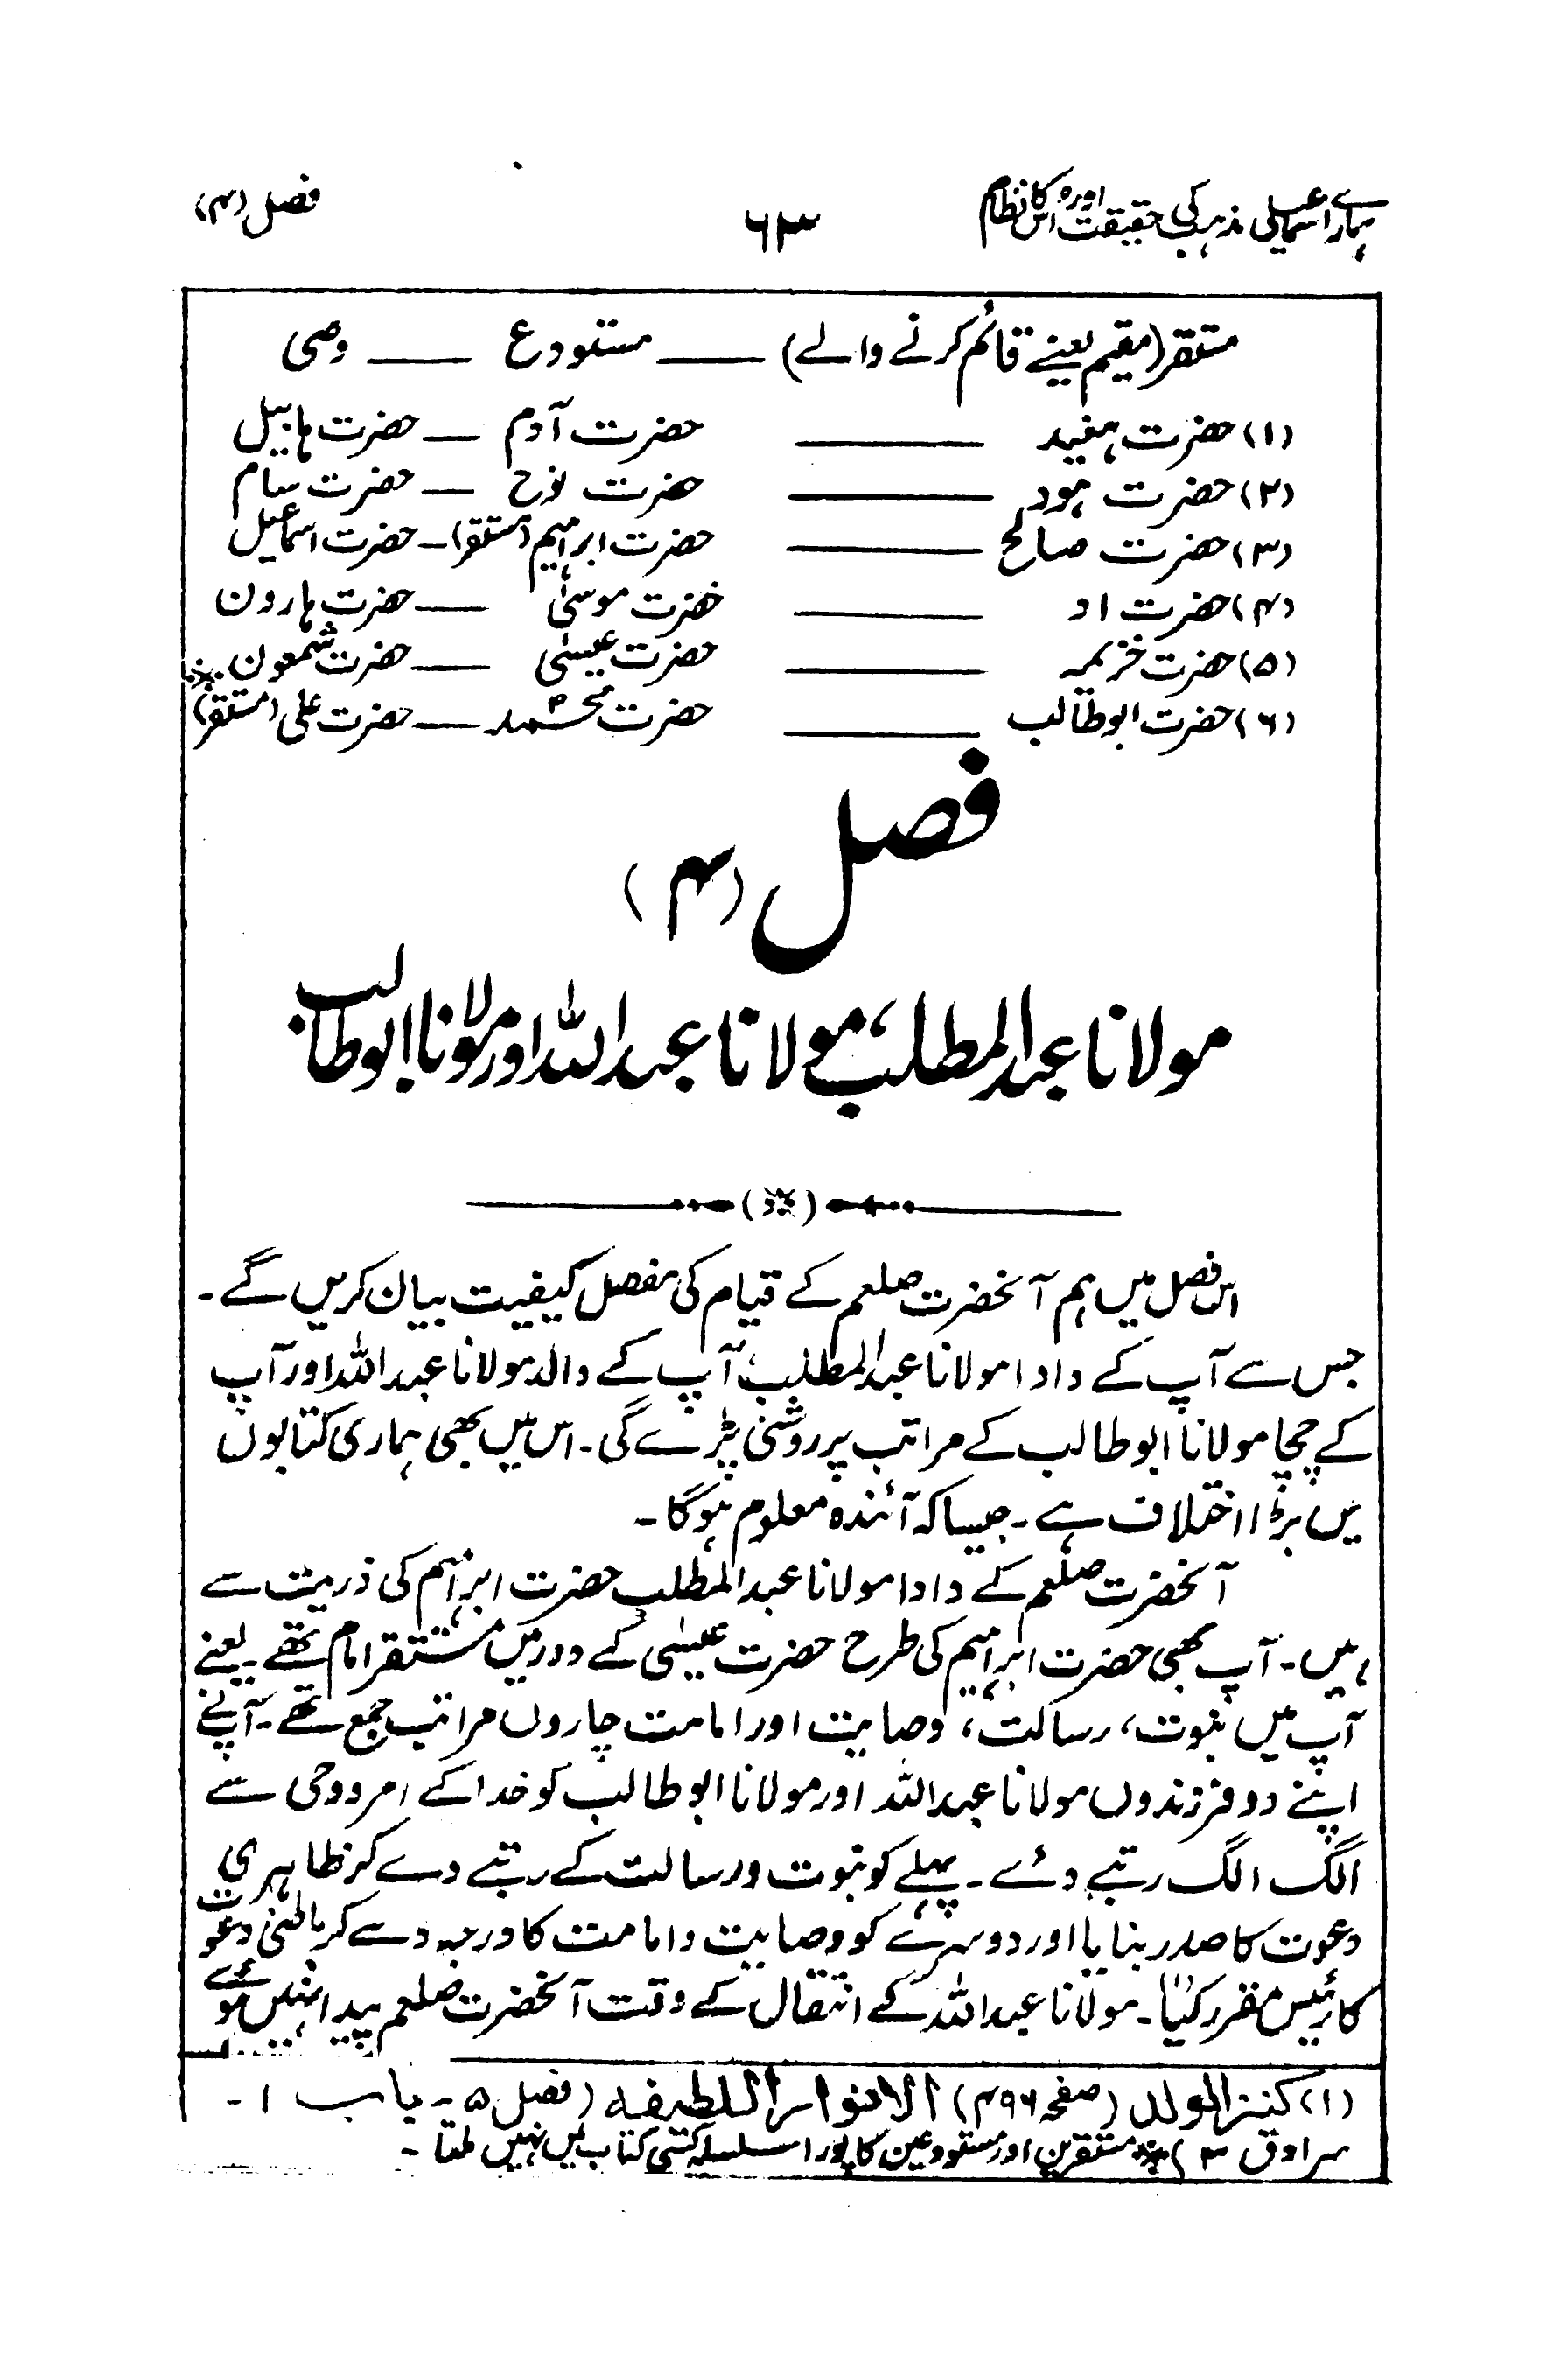 ہمارے اسماعیلی مذہب کی حقیقت اور اس کا نظام ۶۳ فصل (۴)
مستقر (مقیم یعنے قائم کرنے والے) — مستودع — وصی
(۱) حضرت ہنید — حضرت آدم — حضرت ہابیل
(۲) حضرت ہود — حضرت نوح — حضرت سام
(۳) حضرت صالح — حضرت ابراہیم (مستقر) — حضرت اسماعیل
(۴) حضرت اد — حضرت موسیٰ — حضرت ہارون
(۵) حضرت خزیمہ — حضرت عیسیٰ — حضرت شمعون ※
(۶) حضرت ابوطالب — حضرت محمدؐ — حضرت علی (مستقر)
فصل (۴)
مولانا عبد المطلب، مولانا عبد اللہ اور مولانا ابوطالب
اس فصل میں ہم آنحضرت صلعم کے قیام کی مفصل کیفیت بیان کریں گے۔
جس سے آپ کے دادا مولانا عبد المطلب، آپ کے والد مولانا عبد اللہ اور آپ
کے چچا مولانا ابوطالب کے مراتب پر روشنی پڑے گی۔ اس میں بھی ہماری کتابوں
میں بڑا اختلاف ہے۔ جیسا کہ آئندہ معلوم ہوگا۔
آنحضرت صلعم کے دادا مولانا عبد المطلب حضرت ابراہیم کی ذریت سے
ہیں۔ آپ بھی حضرت ابراہیم کی طرح حضرت عیسیٰ کے دور میں مستقر امام تھے۔ یعنے
آپ میں نبوت، رسالت، وصایت اور امامت چاروں مراتب جمع تھے۔ آپنے
اپنے دو فرزندوں مولانا عبد اللہ اور مولانا ابو طالب کو خدا کے امر و وحی سے
الگ الگ رتبے دئے۔ پہلے کو نبوت و رسالت کے رتبے دے کر ظاہری
دعوت کا صدر بنایا اور دوسرے کو وصایت و امامت کا درجہ دے کر باطنی دعوت
کا رئیس مقرر کیا۔ مولانا عبد اللہ کے انتقال کے وقت آنحضرت صلعم پیدا نہیں ہوئے
(۱) کنز الولد (صفحہ ۴۹۶) الانوار اللطیفہ (فصل ۵ ۔ باب ۱ ۔
سرادق ۳) ※ مستقرین اور مستودعین کا پورا سلسلہ کسی کتاب میں نہیں ملتا۔